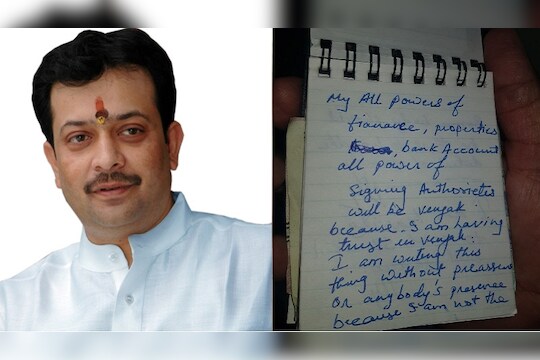 My All Powers of
finance, properties
, bank Account
all power of
Signing Authorietes
will be
because. I am having
trust in
I am writing this
thing without preassure
or anybody's presence
because I am not the